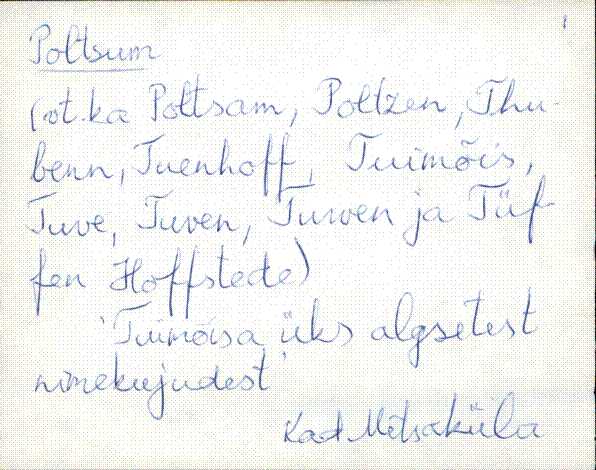 1
Poltsum
(vt. ka Poltsam, Poltzen, Thu-
benn, Tuenhoff, Tuimõis,
Tuve, Tuven, Tuwen ja Tüf-
fen Hoffstede)
'Tuimõisa üks algsetest
nimekujudest'
Kad Metsaküla